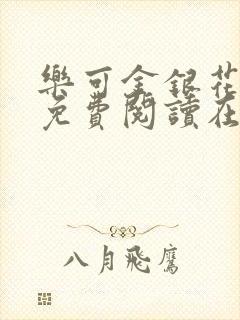 樂可金銀花
免費閱讀在
八月飛鷹